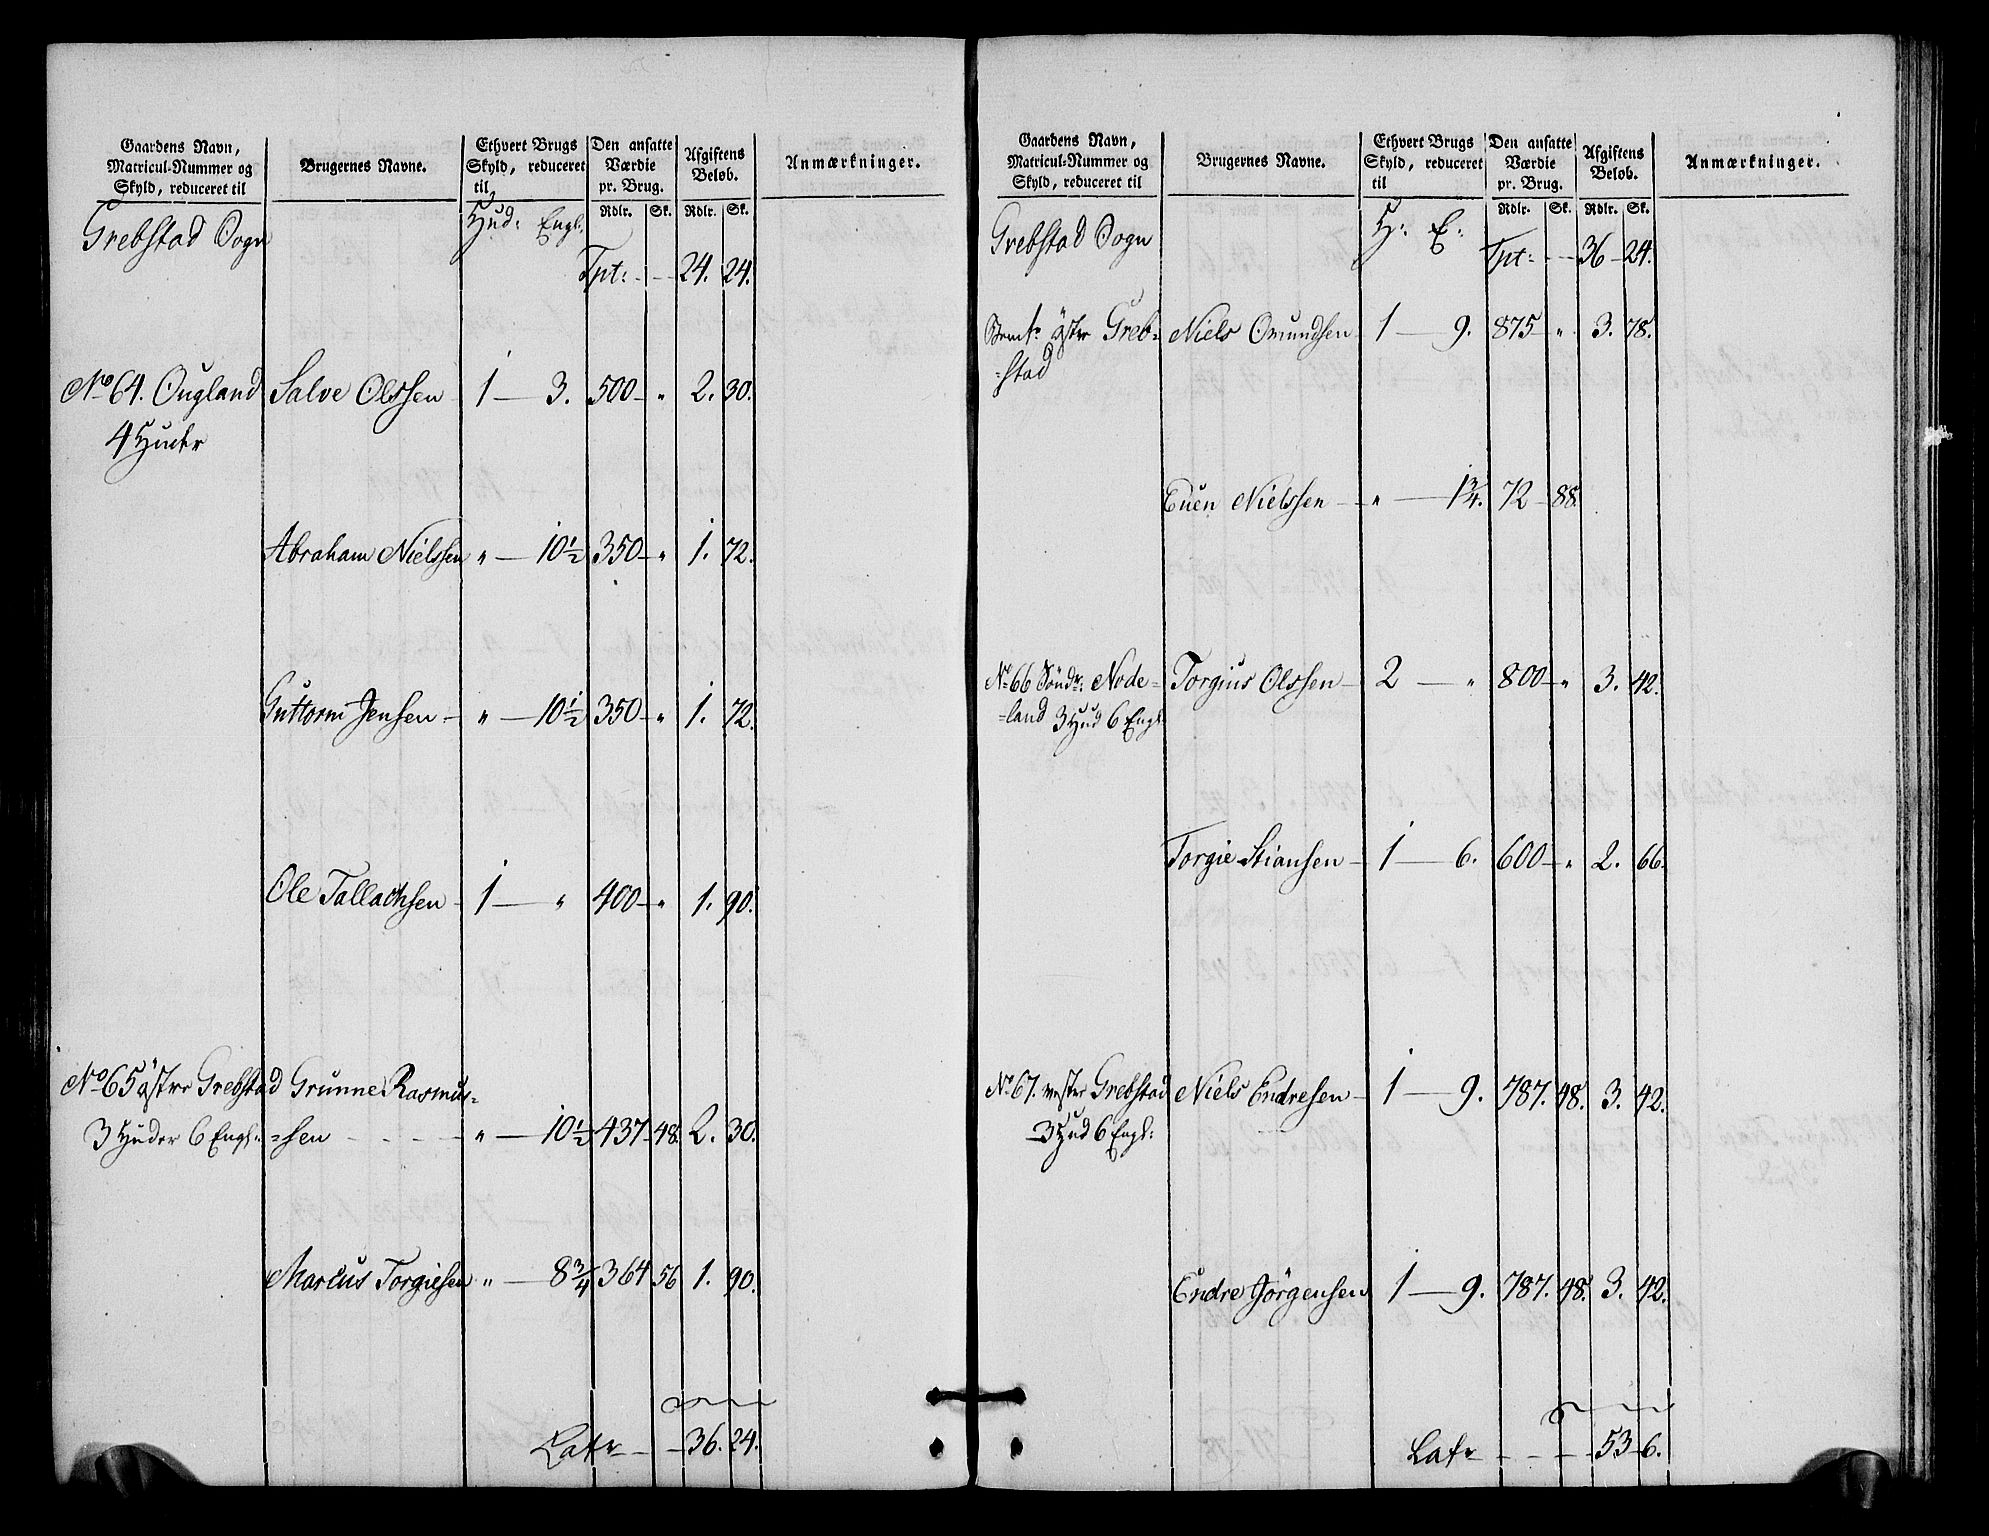 Gaardens Navn, Matricul-Nummer og Skyld, reduceret til | Brugernes Navne. | Ethvert Brugs Skyld, reduceret til | Den ansatte Værdie pr. Brug. | Afgiftens Beløb. | Anmærkninger.
Rdlr. | Sk. | Rdlr. | Sk.
Grebstad Sogn | Hud: Engl:
Tpt: - - - 24. 24.
No 64. Ougland | Salve Olssen | 1 — 3. | 500 — " | 2. 30.
4 Huder
Abraham Nielssen | " — 10 1/2 | 350 — " | 1. 72.
Guttorm Jensen — | " — 10 1/2 | 350 — " | 1. 72.
Ole Tallachsen — | 1 — " | 400 — " | 1. 90.
No 65 östre Grebstad | Grunne Rasmus=
3 Huder 6 Engl: | =sen - - - - | " — 10 1/2 | 437 48. | 2. 30.
Marcus Torgiesen | " — 8 3/4 | 364 56 | 1. 90.
Latr - - - 36. 24.
Gaardens Navn, Matricul-Nummer og Skyld, reduceret til | Brugernes Navne. | Ethvert Brugs Skyld, reduceret til | Den ansatte Værdie pr. Brug. | Afgiftens Beløb. | Anmærkninger.
Rdlr. | Sk. | Rdlr. | Sk.
Grebstad Sogn | H: E:
Tpt: - - - 36 - 24.
östre Greb= | Niels Omundsen | 1 — 9. | 875 " | 3. 78.
=stad
Even Nielssen — | " — 1 3/4. | 72 — 88.
No 66 Söndr: Node= | Torgius Olssen — | 2 — " | 800 — " | 3. 42.
=land 3 Hud 6 Engl: 
Torgie Stiansen — | 1 — 6. | 600 — " | 2. 66.
No 67. vester Grebstad | Niels Endresen — | 1 — 9. | 787. 48. | 3. 42.
3 Hud 6 Engl:
Endre Jörgensen | 1 — 9. | 787. 48. | 3. 42.
Latr - - - 53 - 6.